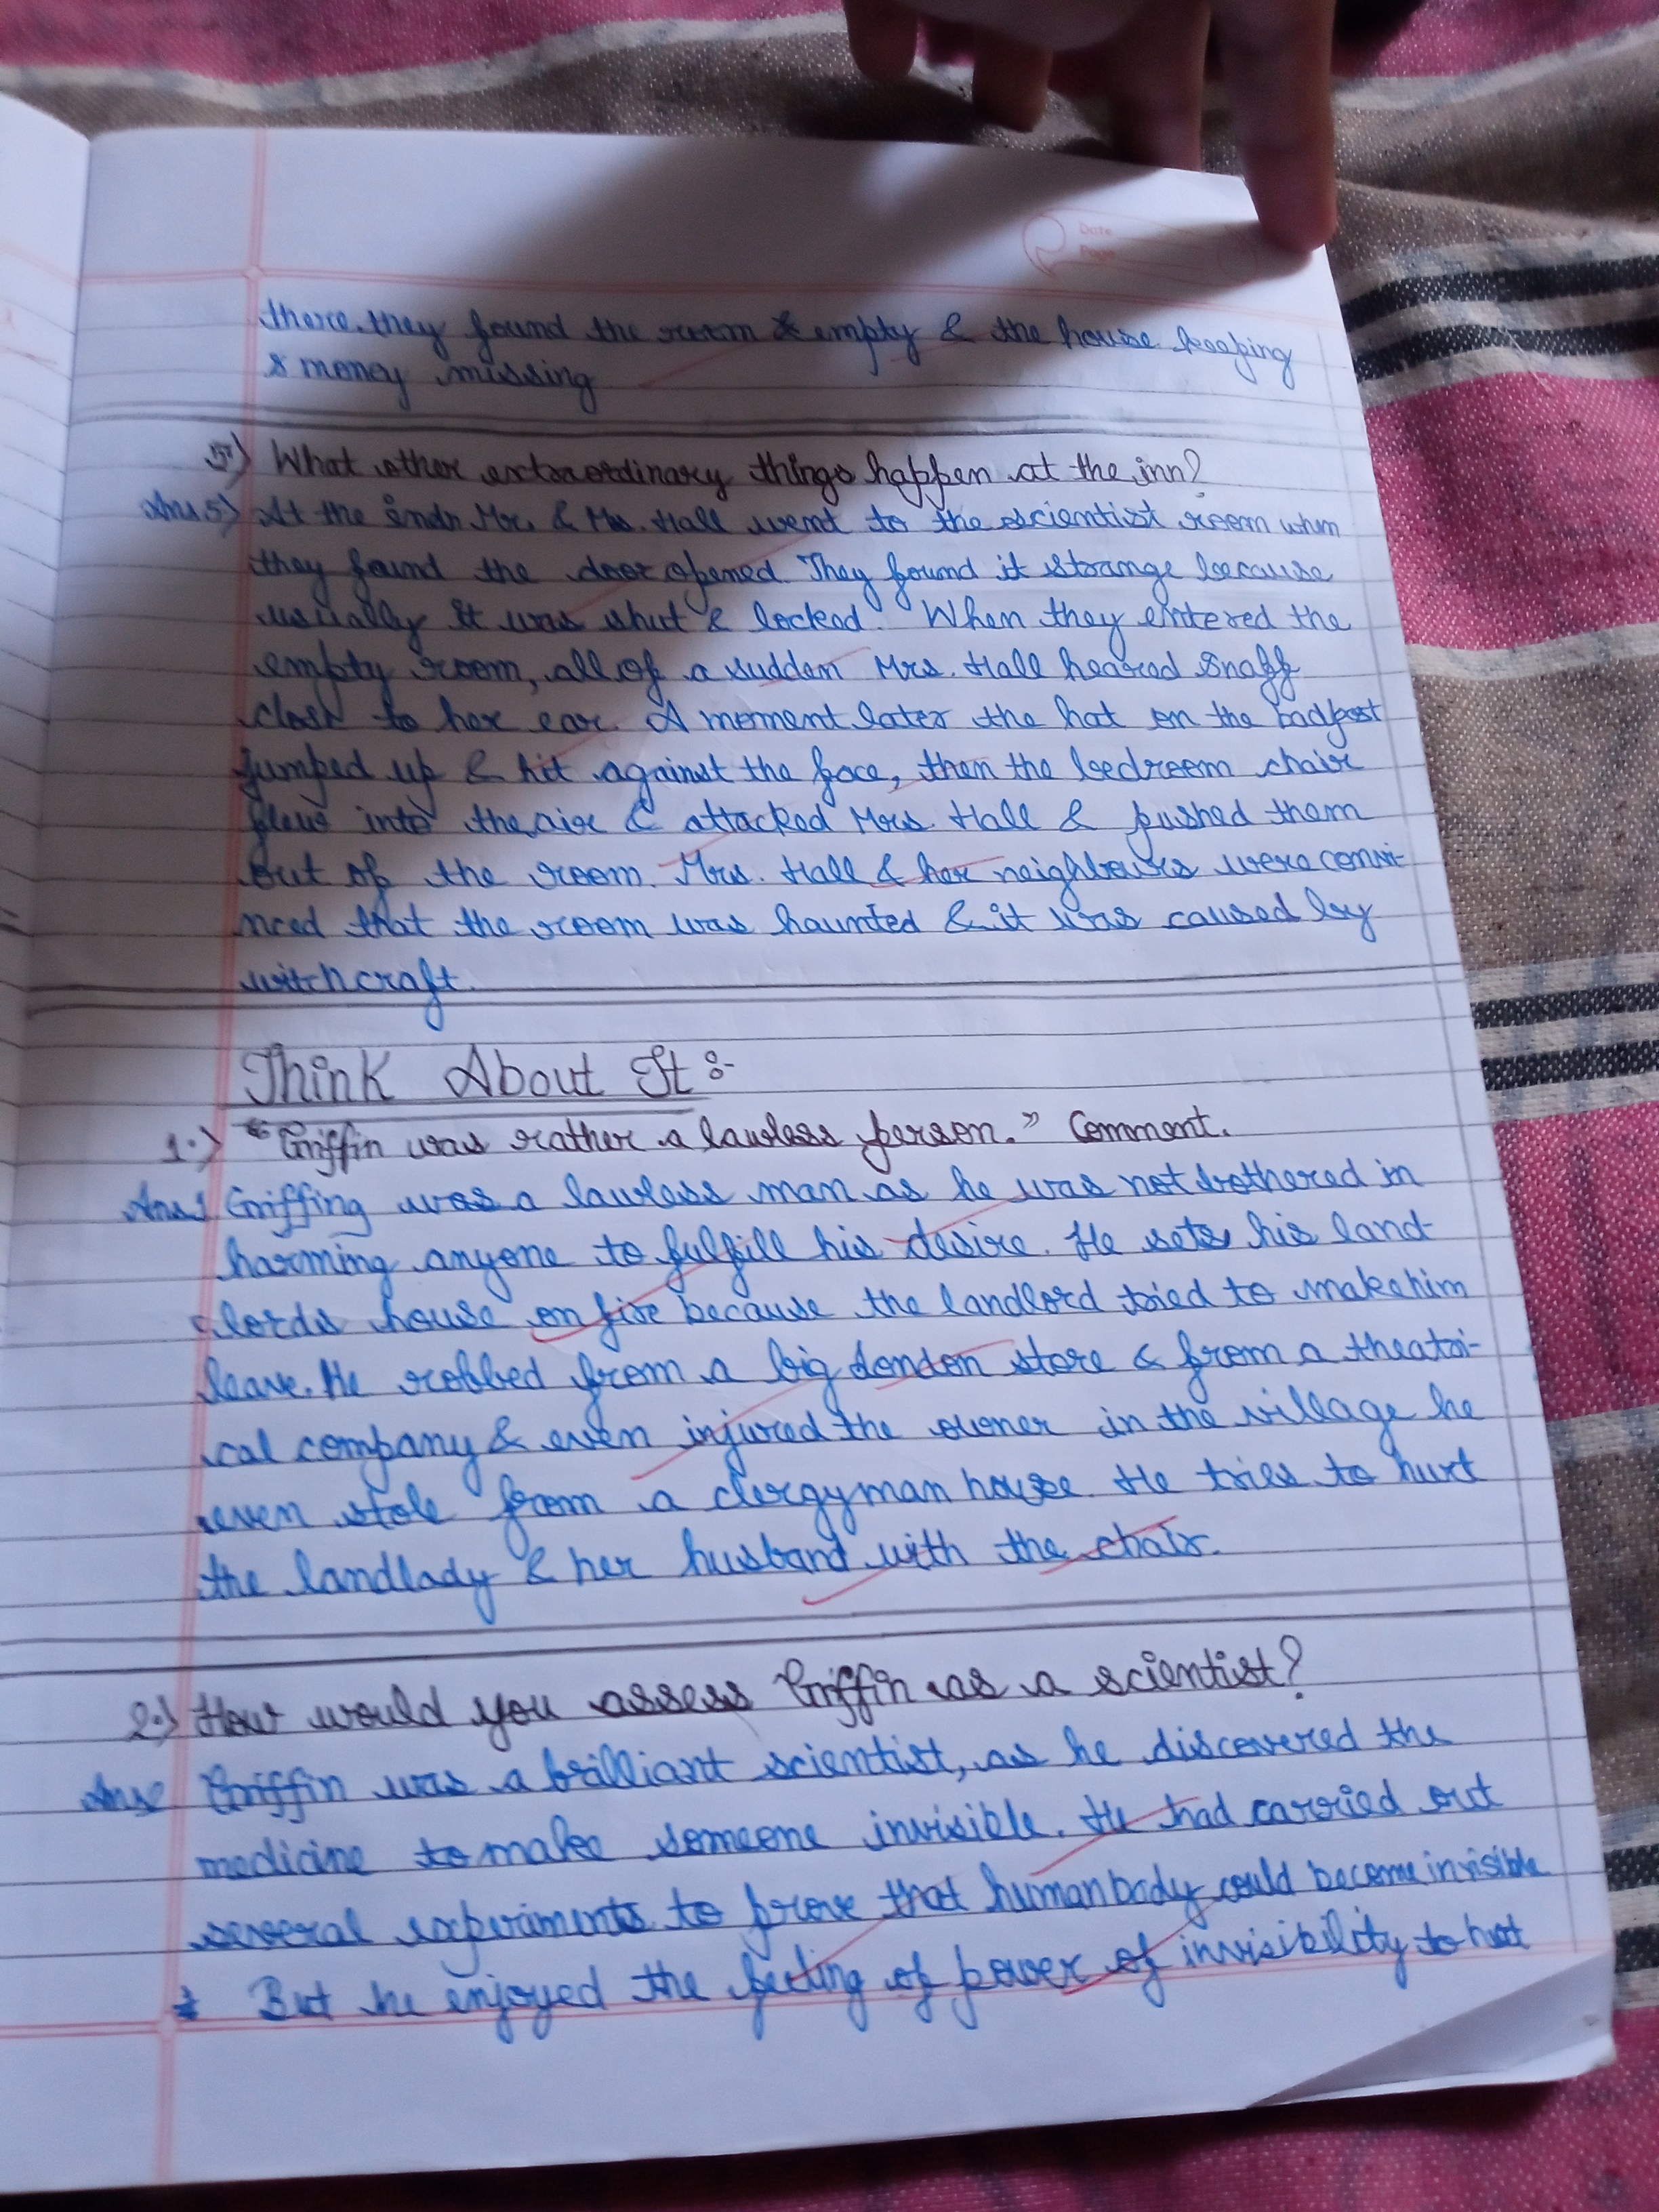 Date
Page
there, they found the room & empty & the house keeping
& money missing
5) What other extraordinary things happen at the inn?
Ans5) At the Mr. & Mrs. Hall went to the scientist room when
they found the door opened. They found it strange because
usually it was shut & locked. When they entered the
empty room, all of a sudden Mrs. Hall heared snaff
close to her ear. A moment later the hat on the badpost
jumped up & hit against the face, then the bedroom chair
flew into the air & attacked Mrs. Hall & pushed them
out of the room. Mrs. Hall & her neighbours were convi-
nced that the room was haunted & it was caused by
witchcraft.
Think About It :-
1.) "Griffin was rather a lawless person." Comment.
Ans.1 Griffing was a lawless man as he was not bothered in
harming anyone to fulfill his desire. He sets his land-
lords house on fire because the landlord tried to make him
leave. He robbed from a big London store & from a theatri-
cal company & even injured the owner in the village he
even stole from a clergyman house. He tries to hurt
the landlady & her husband with the chair.
2.) How would you assess Griffin as a scientist?
Ans2 Griffin was a brilliant scientist, as he discovered the
medicine to make someone invisible. He had carried out
several experiments to prove that human body could become invisible
But he enjoyed the feeling of power of invisibility to